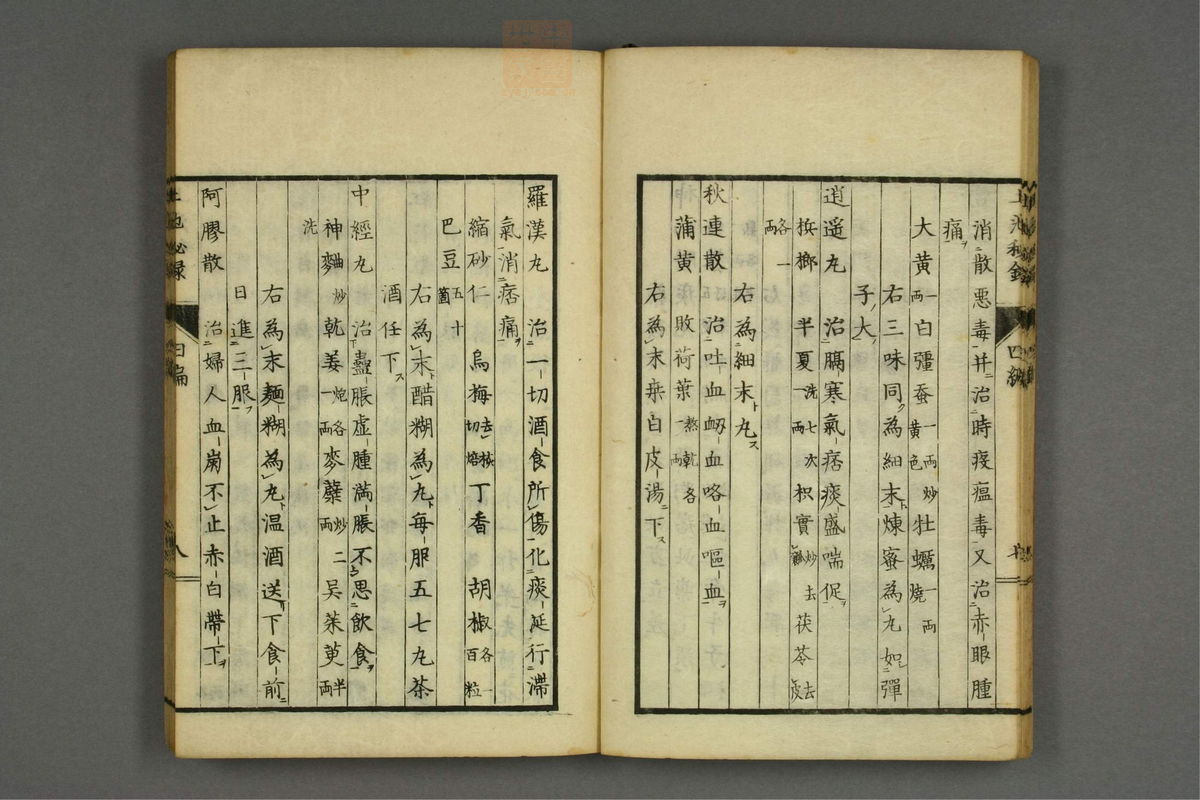 消散悪毒并治時疫瘟毒又治赤眼腫
痛
大黄一両白彊蚕一両炒黄色牡蠣一両焼
右三味同為細末煉蜜為丸如彈
子大
逍遥丸治膈寒氣痞痰盛喘促
梹榔各一両半夏洗七次一両枳實炒去茯苓去皮
秋連散治吐血衂血咯血嘔血
右為細末丸
蒲黄敗荷葉熬乾各一両
右為末桒白皮湯下
羅漢丸治一切酒食所傷化痰延行滞
氣消痞痛
縮砂仁烏梅去核切焙丁香胡椒各一百粒
巴豆五十箇
右為末醋糊為丸毎服五七丸茶
酒任下
中經丸治蠱脹虚腫満脹不思飲食
神麯炒乾姜炮各一両麥蘗炒二両吴茱萸半両
洗
右為末麵糊為丸温酒送下食前
日進三服
阿膠散治婦人血崩不止赤白帶下
八